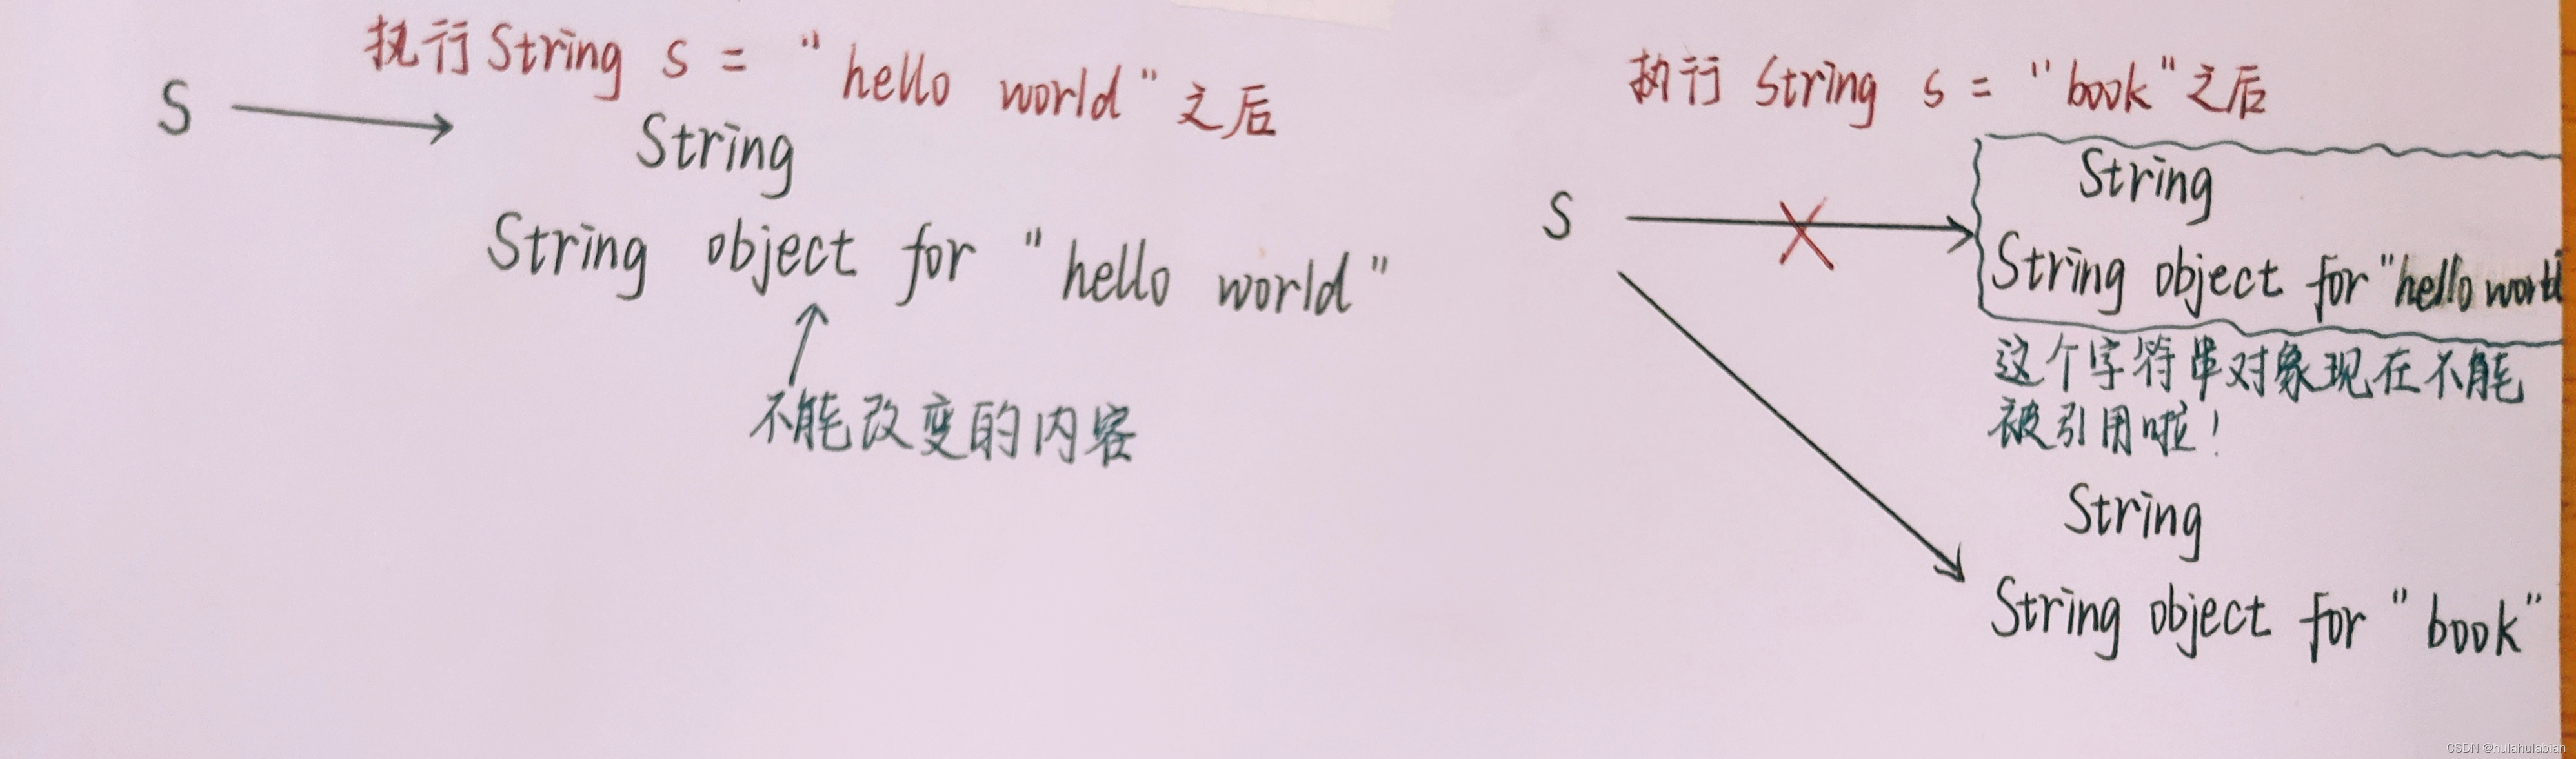 执行String s = "hello world"之后
S
String
String object for "hello world"
不能改变的内容
执行 String s = "book"之后
S
String
String object for "hello world
这个字符串对象现在不能
被引用啦!
String
String object for "book"
CSDN @hulahulabian